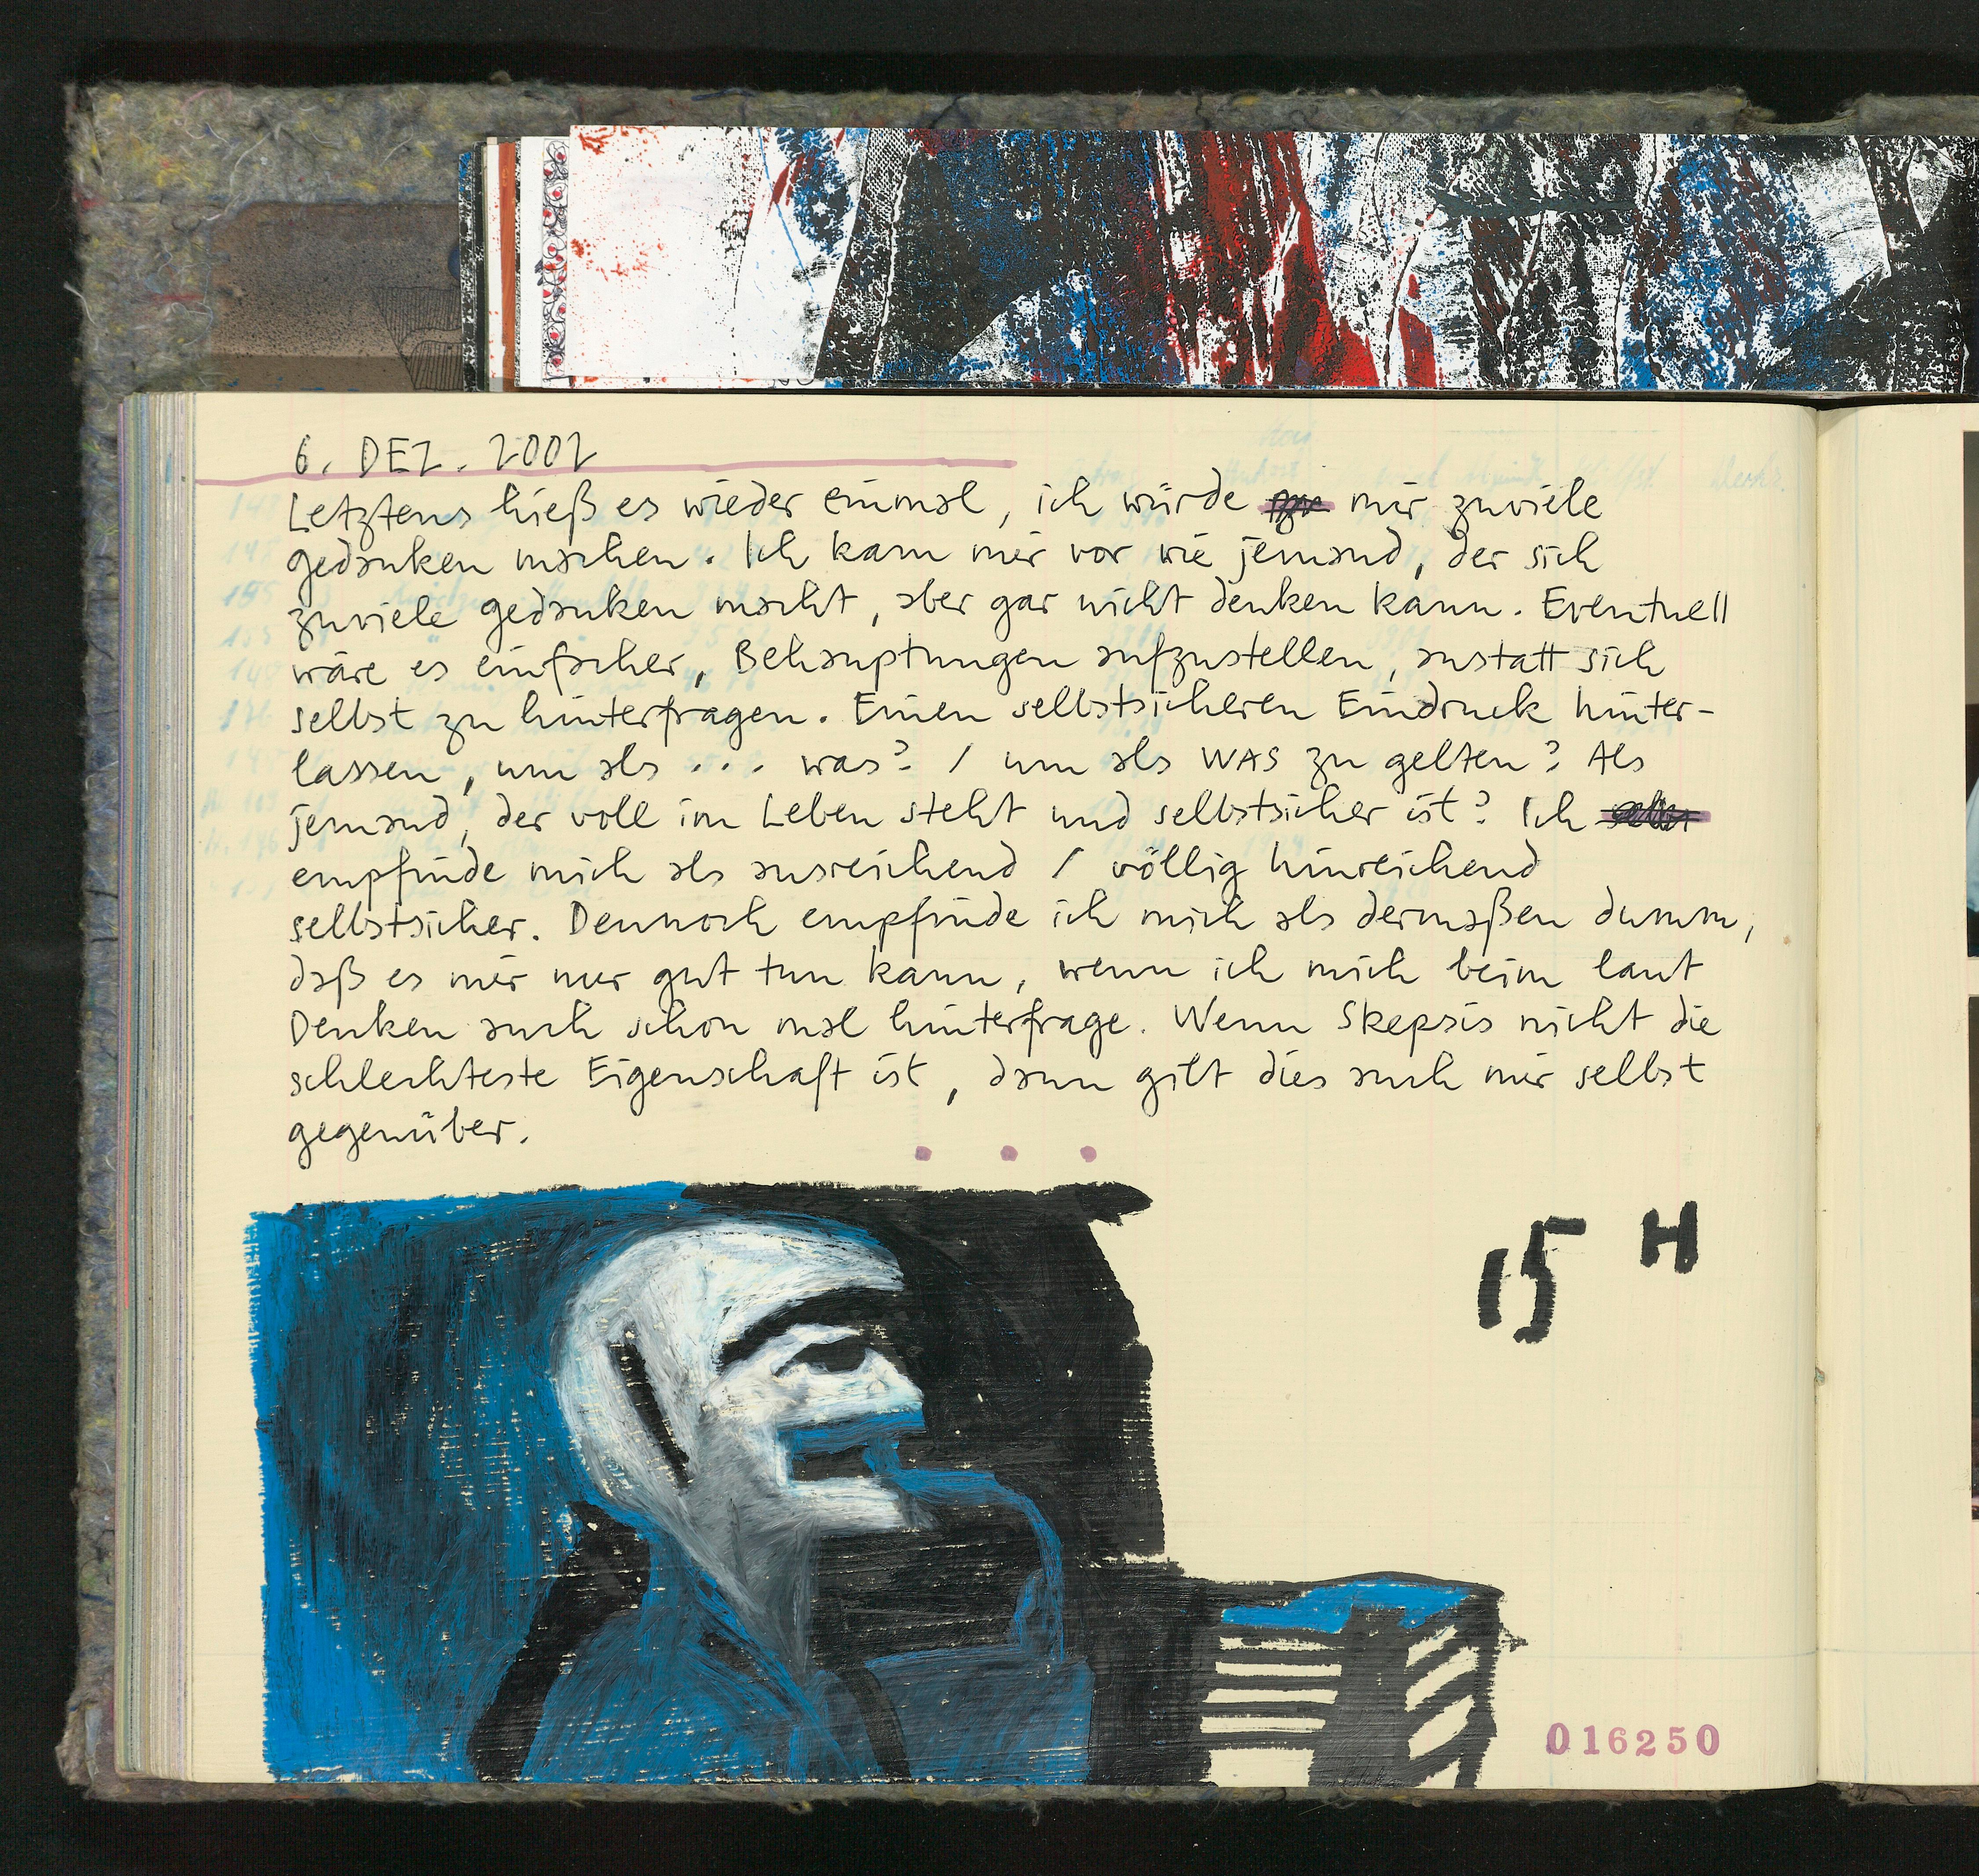 6. DEZ. 2002
Letztens hieß es wieder einmal, ich würde mir zuviele
gedanken machen. Ich kam mir vor wie jemand, der sich
zuviele gedanken macht, aber gar nicht denken kann. Eventuell
wäre es einfacher, Behauptungen aufzustellen, anstatt sich
selbst zu hinterfragen. Einen selbstsicheren Eindruck hinter-
lassen, um als ... was? / um als WAS zu gelten? Als
jemand, der voll im Leben steht und selbstsicher ist? Ich
empfinde mich als ausreichend / völlig hinreichend
selbstsicher. Dennoch empfinde ich mich als dermaßen dumm,
daß es mir nur gut tun kann, wenn ich mich beim laut
Denken auch schon mal hinterfrage. Wenn Skepsis nicht die
schlechteste Eigenschaft ist, dann gilt dies auch mir selbst
gegenüber.
15 H
016250